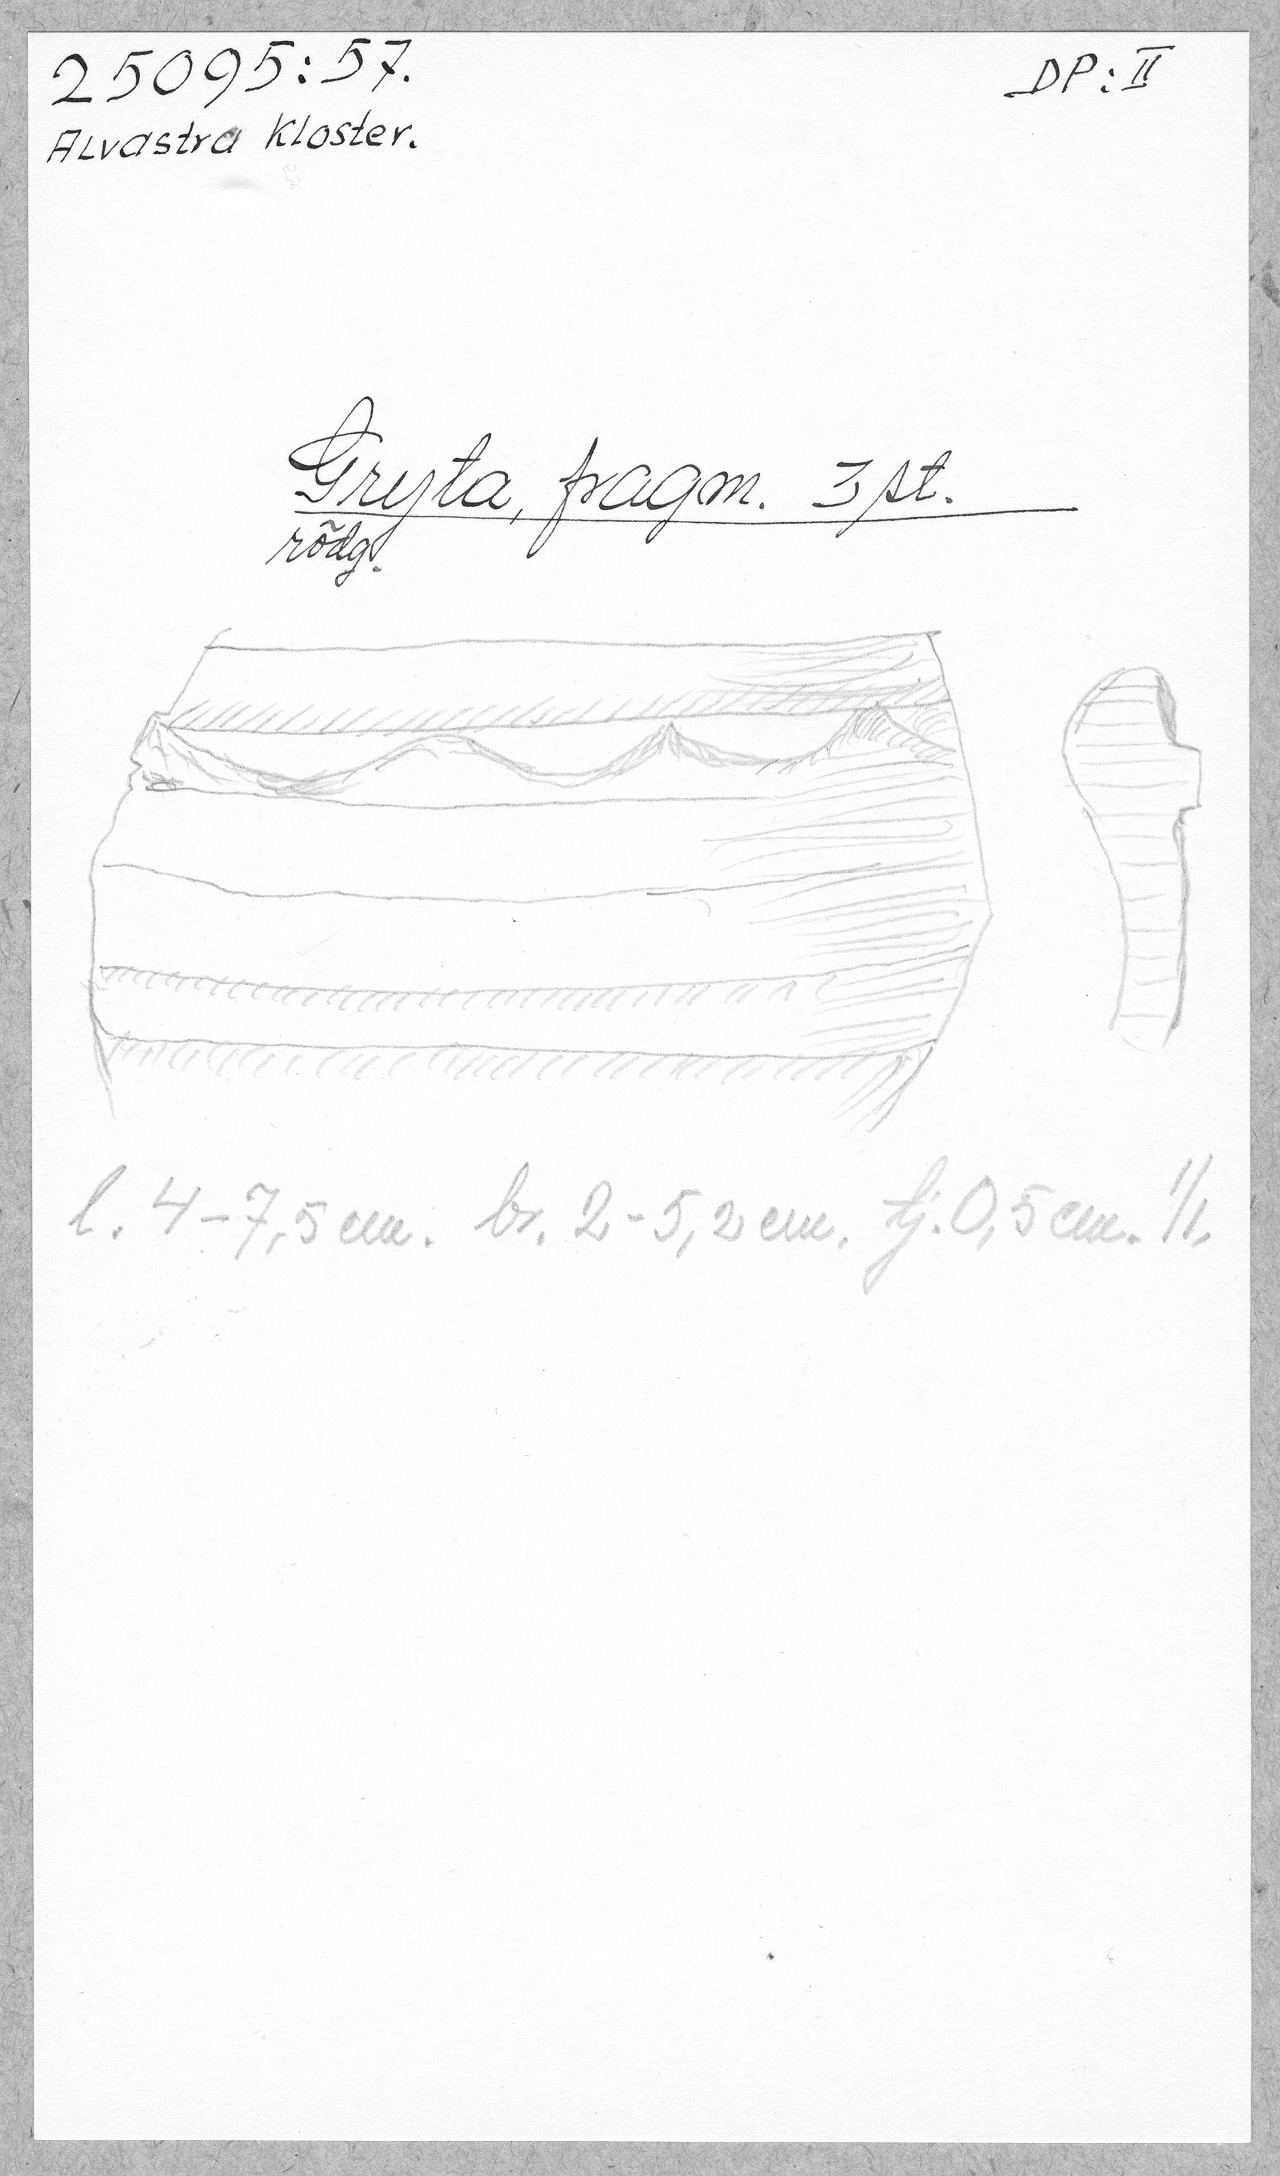 25095:57.
DP: II
Alvastra Kloster.
Gryta, fragm. 3 st.
rödg.
l. 4-7,5 cm. br. 2-5,2 cm. tj. 0,5 cm. 1/1.